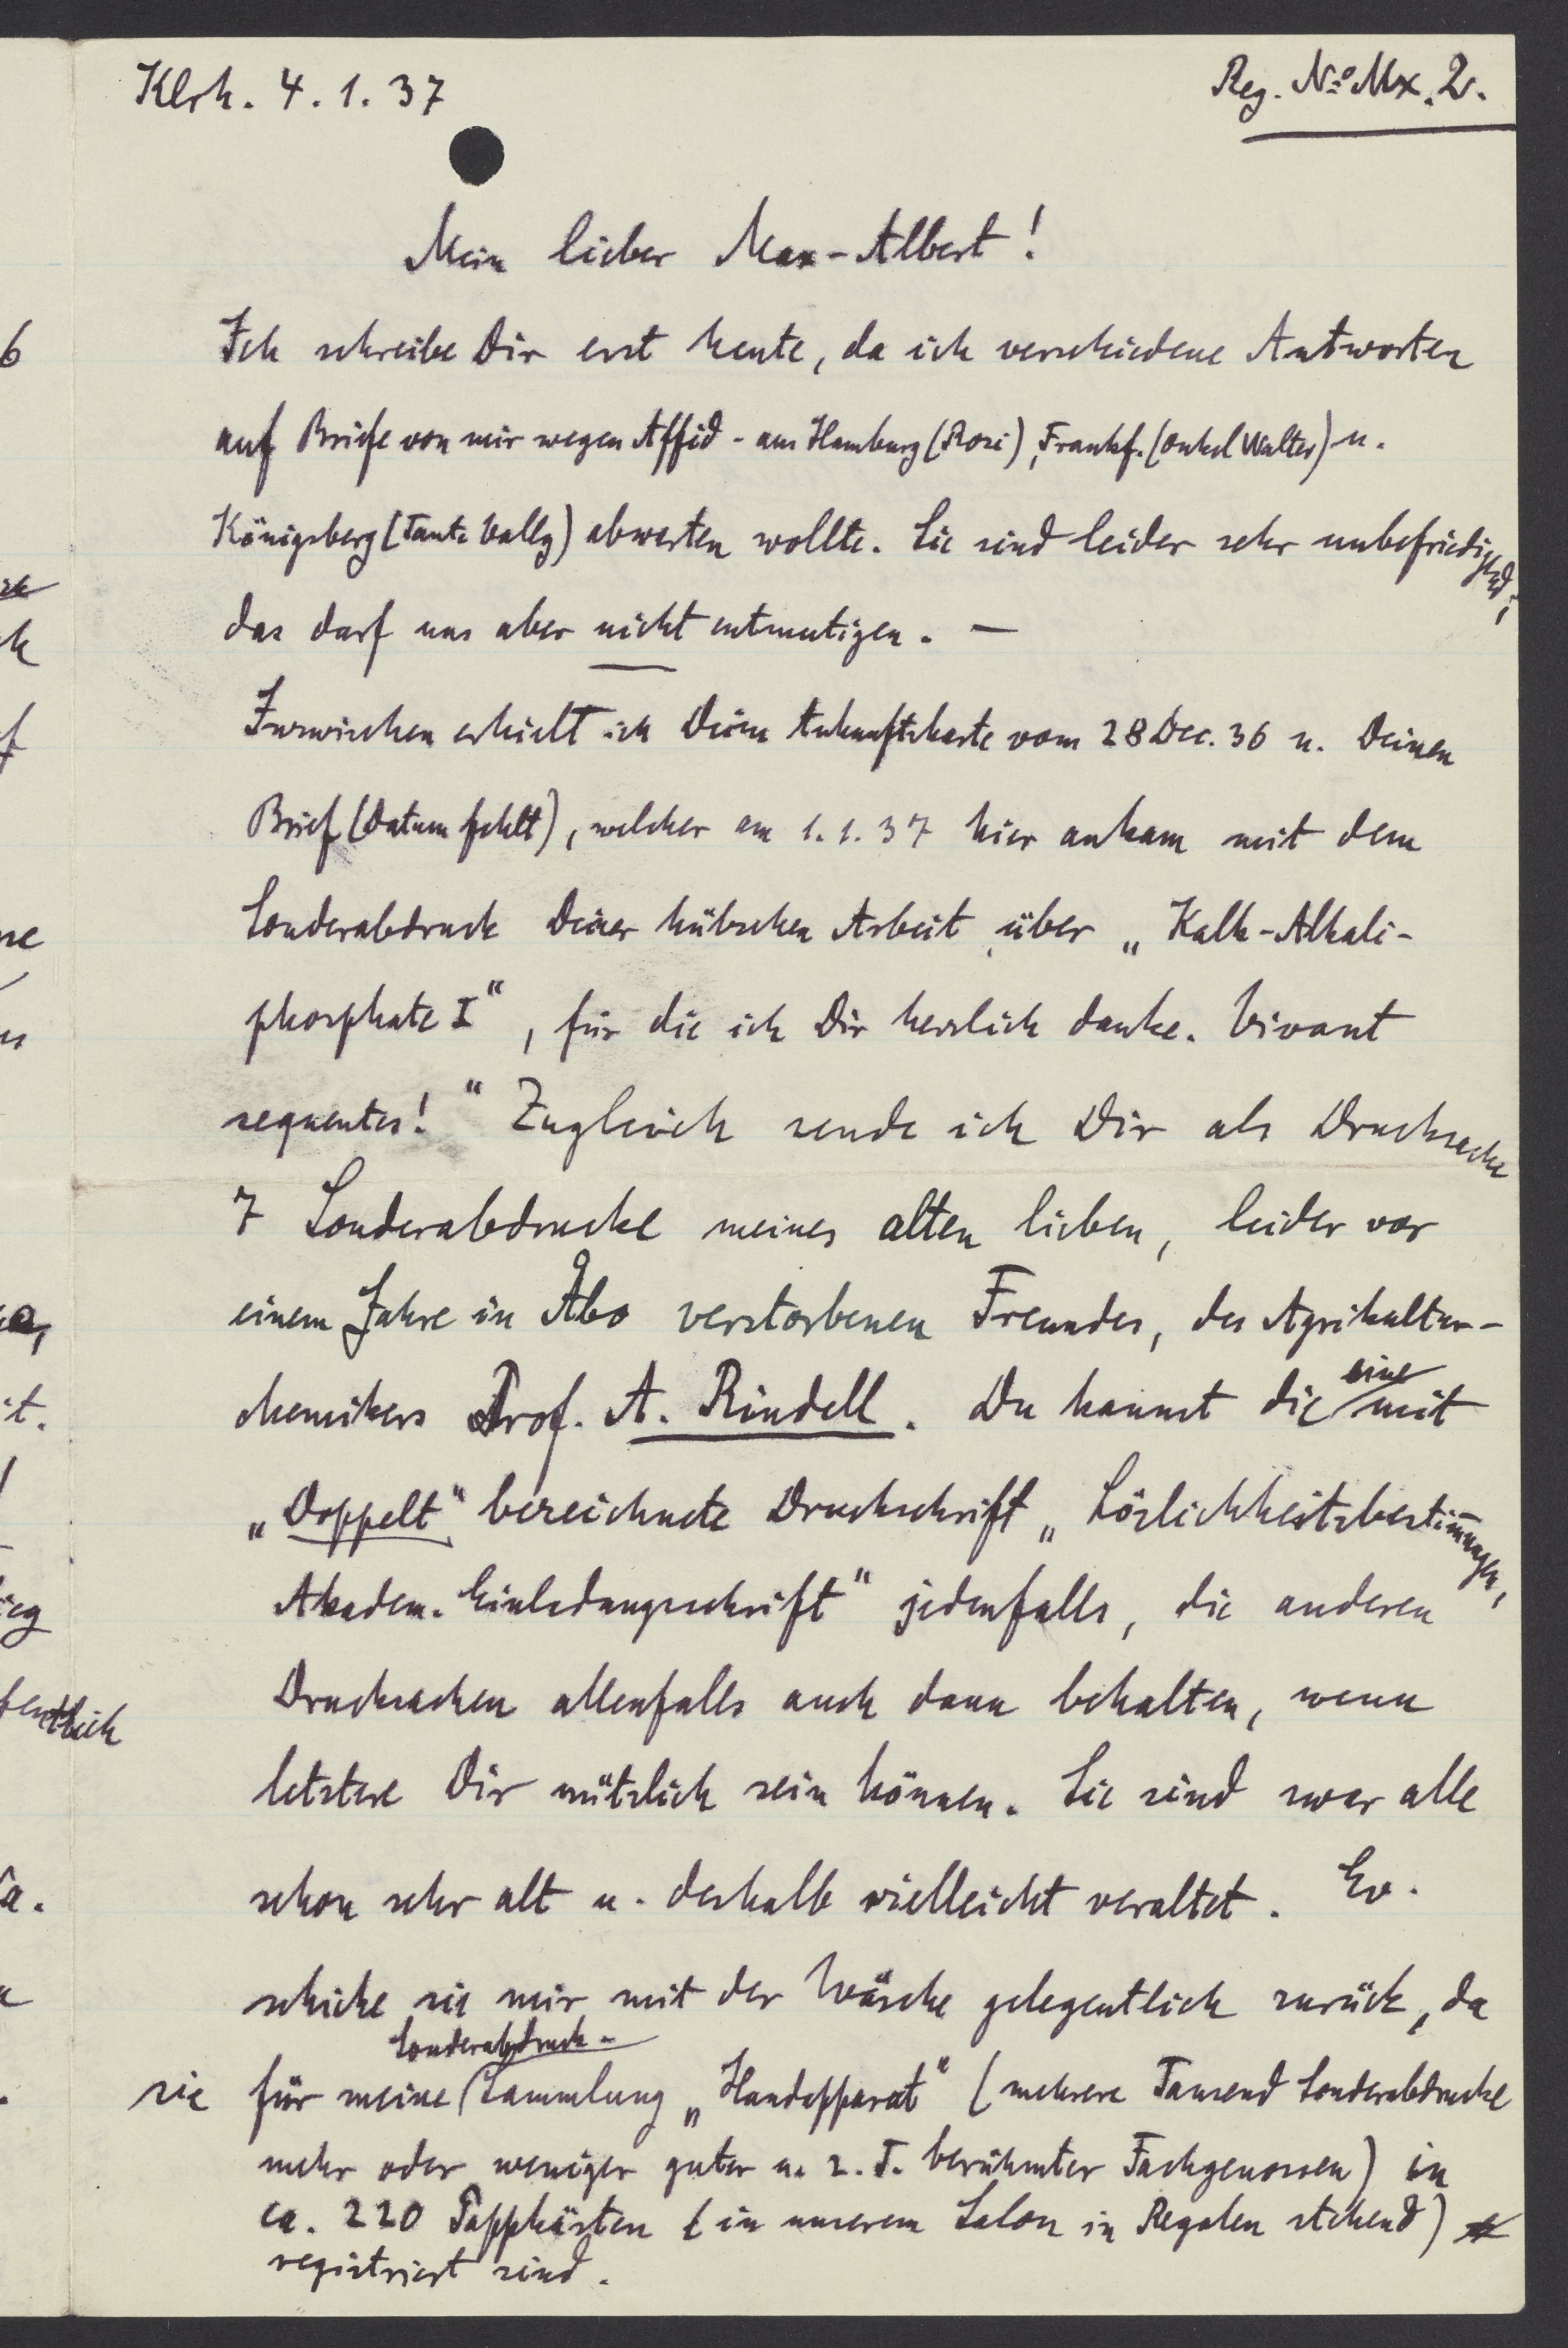 Klrh. 4.1.37
Reg. No Mx. 2.
Mein lieber Max-Albert!
Ich schreibe Dir erst heute, da ich verschiedene Antworten
auf Briefe von mir wegen Affid - aus Hamburg (Rosi), Frankf. (Onkel Walter) u.
Königsberg (Tante Vally) abwarten wollte. Sie sind leider sehr unbefriedigend;
das darf uns aber nicht entmutigen. —
Inzwischen erhielt ich Deine Ankunftskarte vom 28 Dec. 36 u. Deinen
Brief (Datum fehlt), welcher am 1.1.37 hier ankam mit dem
Sonderabdruck Deiner hübschen Arbeit über „Kalk-Alkali-
phosphate I“, für die ich Dir herzlich danke. Vivant
sequentes!“ Zugleich sende ich Dir als Drucksache
7 Sonderabdrucke meines alten lieben, leider vor
einem Jahre in Åbo verstorbenen Freundes, des Agrikultur-
chemikers Prof. A. Rindell. Du kannst die eine mit
„Doppelt“ bezeichnete Druckschrift „Löslichkeitsbestimmungen,
Akadem. Einladungsschrift“ jedenfalls, die anderen
Drucksachen allenfalls auch dann behalten, wenn
letztere Dir nützlich sein können. Sie sind zwar alle
schon sehr alt u. deshalb vielleicht veraltet. Ev.
schicke sie mir mit der Wäsche gelegentlich zurück, da
sie für meine Sonderabdruck- Sammlung „Handapparat“ (mehrere Tausend Sonderabdrucke
mehr oder weniger guter u. z. T. berühmter Fachgenossen) in
ca. 220 Pappkästen (in unserem Salon in Regalen stehend)
registriert sind.